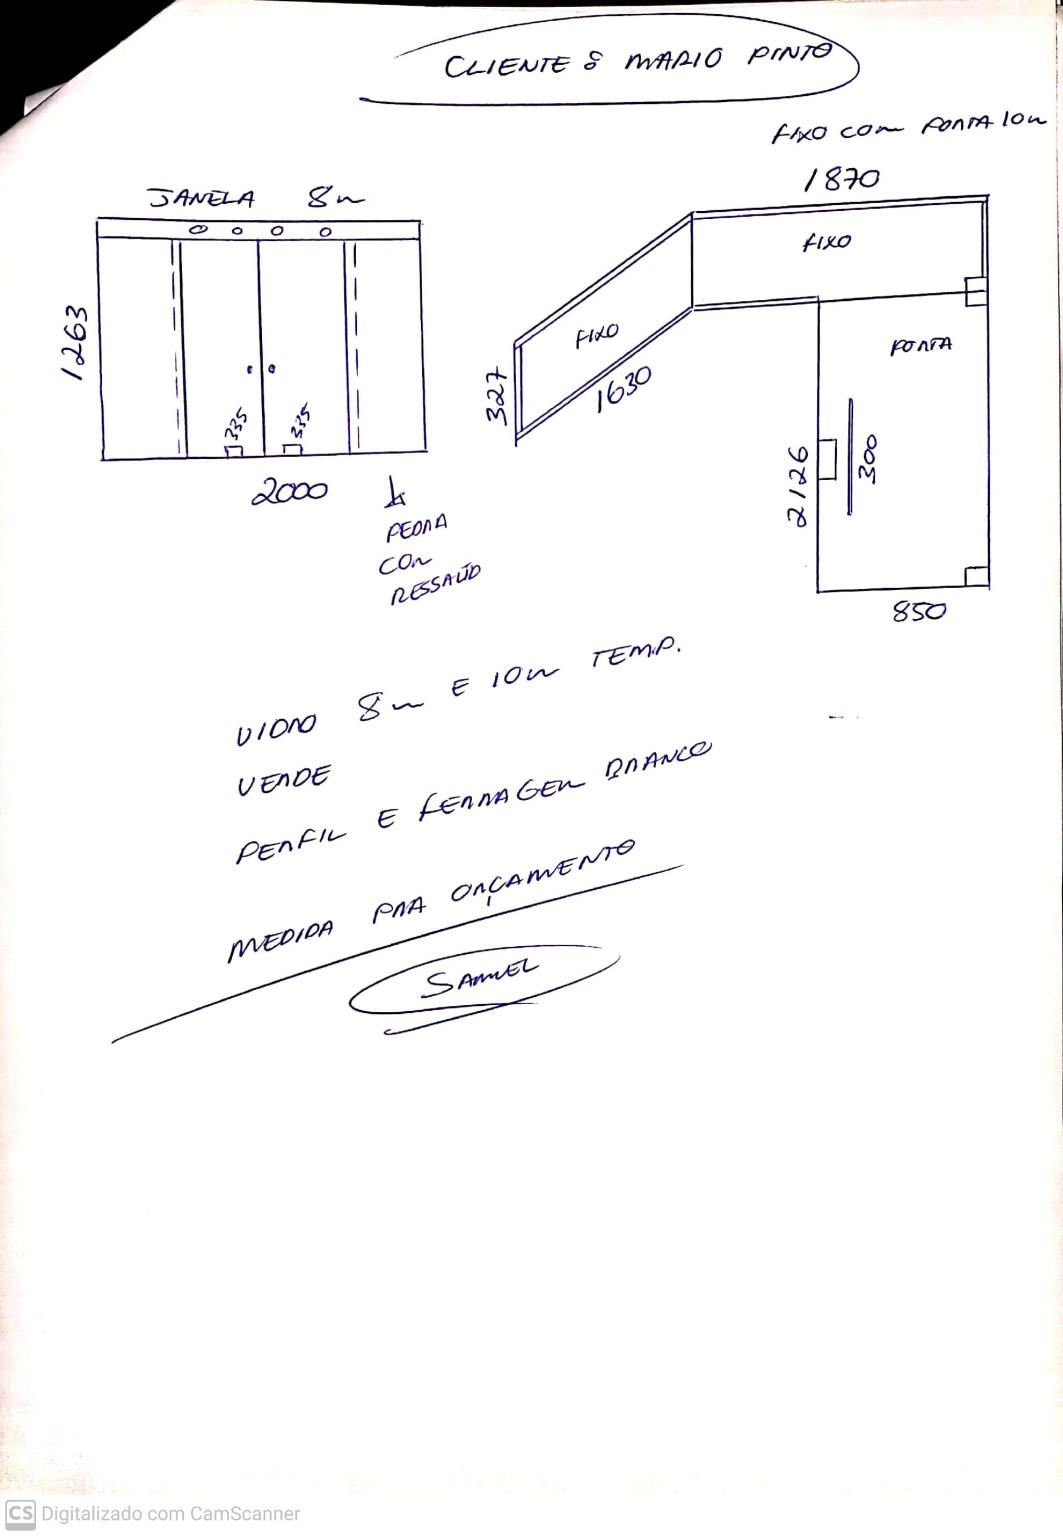 CLIENTE : MARIO PINTO
FIXO COM PORTA 10m
1870
JANELA 8m
FIXO
1263
FIXO
PORTA
327
1630
335
335
2126
300
2000
PEDRA
COM
RESSALTO
850
VIDRO 8m E 10m TEMP.
VERDE
PERFIL E FERRAGEM BRANCO
MEDIDA PRA ORÇAMENTO
SAMUEL
CS Digitalizado com CamScanner